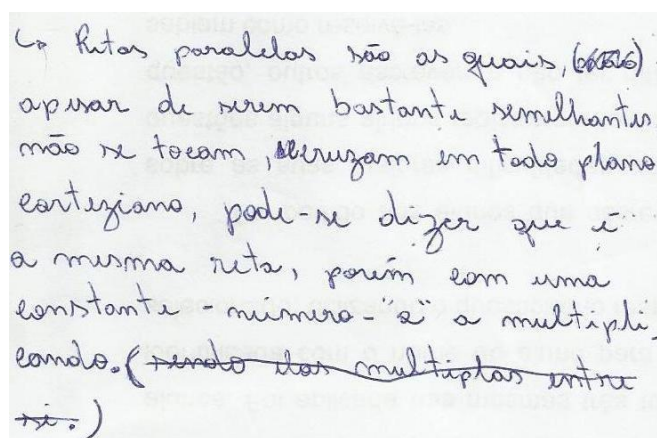 ↳ Retas paralelas são as quais,
apesar de serem bastante semelhantes
não se tocam, cruzam em todo plano
corteziano, pode-se dizer que é
a mesma reta, porém com uma
constante número-"a" a multipli-
cando. (tendo elas multiplas entre
se.)